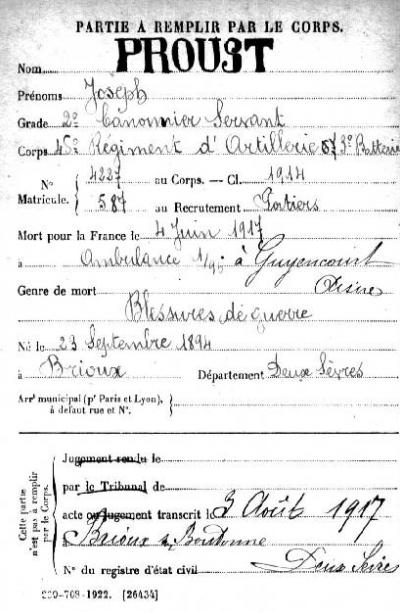 PARTIE À REMPLIR PAR LE CORPS.
Nom PROUST
Prénoms Joseph
Grade 2e Canonnier Servant
Corps 45e Régiment d'Artillerie 3e Batterie
N° Matricule. 4227 au Corps. — Cl. 1914
587 au Recrutement Poitiers
Mort pour la France le 4 Juin 1917
à Ambulance à Guyencourt
Aisne
Genre de mort
Blessures de guerre
Né le 23 Septembre 1894
à Brioux Département Deux Sèvres
Arrt municipal (pr Paris et Lyon), à défaut rue et N°.
Cette partie n'est pas à remplir par le Corps.
Jugement rendu le
par le Tribunal de
acte ou jugement transcrit le 3 Août 1917
à Brioux s. Boutonne
Deux Sèvres
N° du registre d'état civil
-708-1922. [26434]